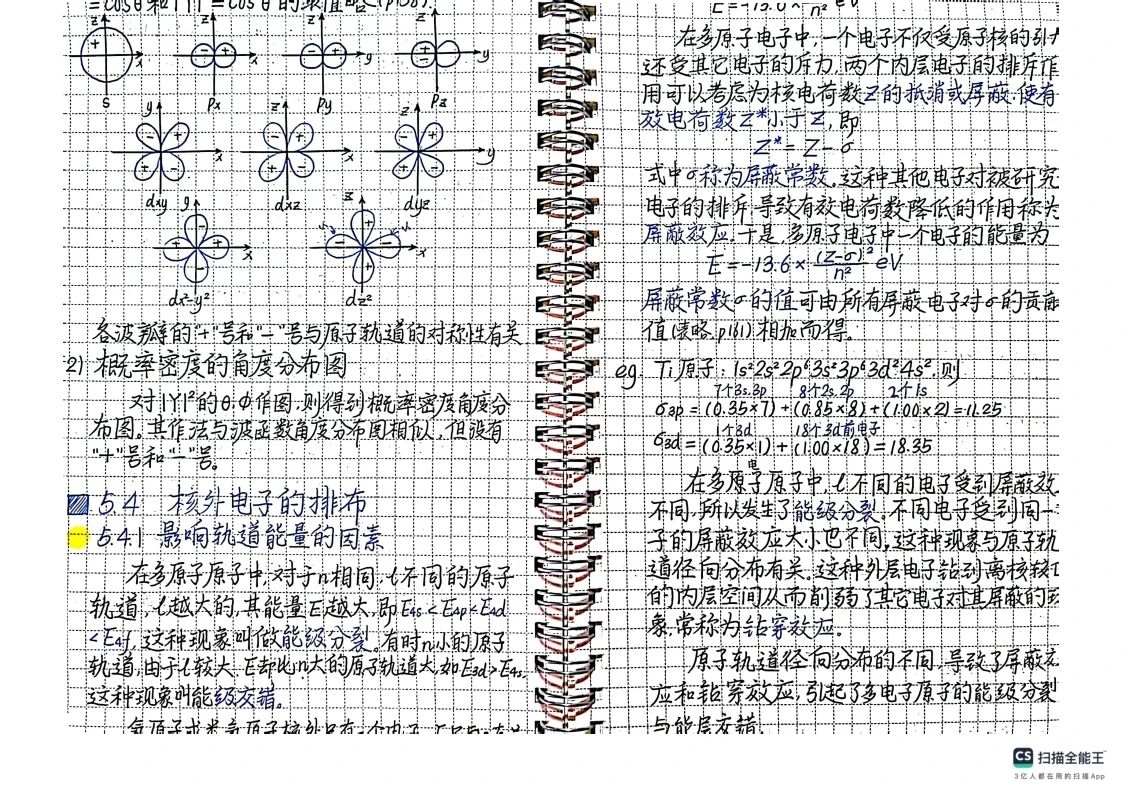 =cosθ和|Y|²=cos²θ的取值略(p158).
z
+
x
s
z
-
+
x
Px
z
-
+
y
Py
z
y
Pz
y
-
+
+
-
x
dxy
z
-
+
+
-
x
dxz
z
-
+
+
-
y
dyz
y
-
+
+
-
x
dx²-y²
z
+
-
-
+
x
dz²
各波瓣的"+"号和"-"号与原子轨道的对称性有关
2) 概率密度的角度分布图
对|Y|²的θ.Φ作图,则得到概率密度角度分
布图。其作法与波函数角度分布图相似,但没有
"+"号和"-"号。
5.4 核外电子的排布
5.4.1 影响轨道能量的因素
在多原子原子中,对于n相同,l不同的原子
轨道,l越大的,其能量E越大,即E4s<E4p<E4d
<E4f,这种现象叫做能级分裂。有时n小的原子
轨道,由于l较大,E却比n大的原子轨道大,如E3d>E4s,
这种现象叫能级交错。
氢原子或类氢原子核外只有一个电子
E=-13.6×1/n² eV
在多原子电子中,一个电子不仅受原子核的引力
还受其它电子的斥力,两个内层电子的排斥作
用可以考虑为核电荷数Z的抵消或屏蔽,使有
效电荷数Z*小于Z,即
Z*=Z-σ
式中σ称为屏蔽常数。这种其他电子对被研究
电子的排斥,导致有效电荷数降低的作用称为
屏蔽效应.于是,多原子电子中一个电子的能量为
E=-13.6×(Z-σ)²/n² eV
屏蔽常数σ的值可由所有屏蔽电子对σ的贡献
值(策略.p161)相加而得。
eg. Ti原子:1s²2s²2p⁶3s²3p⁶3d²4s².则
7个3s.3p 8个2s.2p 2个1s
σ3p=(0.35×7)+(0.85×8)+(1.00×2)=11.25
1个3d 18个3d前电子
σ3d=(0.35×1)+(1.00×18)=18.35
电
在多原子原子中,l不同的电子受到屏蔽效
不同,所以发生了能级分裂。不同电子受到同一
子的屏蔽效应大小也不同,这种现象与原子轨
道径向分布有关。这种外层电子钻到离核较近
的内层空间从而削弱了其它电子对其屏蔽的现
象,常称为钻穿效应。
原子轨道径向分布的不同,导致了屏蔽效
应和钻穿效应,引起了多电子原子的能级分裂
与能层交错.
CS 扫描全能王
3亿人都在用的扫描App